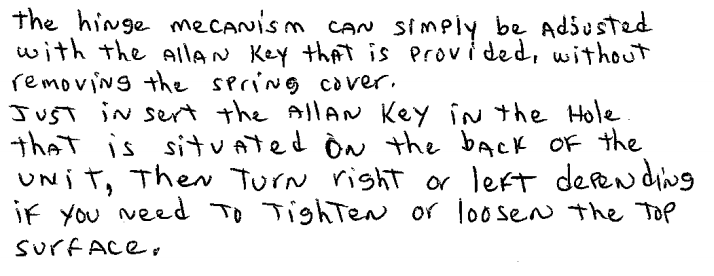 the hinge mecanism can simply be adjusted
with the Allan Key that is provided, without
removing the spring cover.
Just insert the Allan Key in the Hole
that is situated on the back of the
unit, Then Turn right or left depending
if you need To Tighten or loosen the Top
surface.